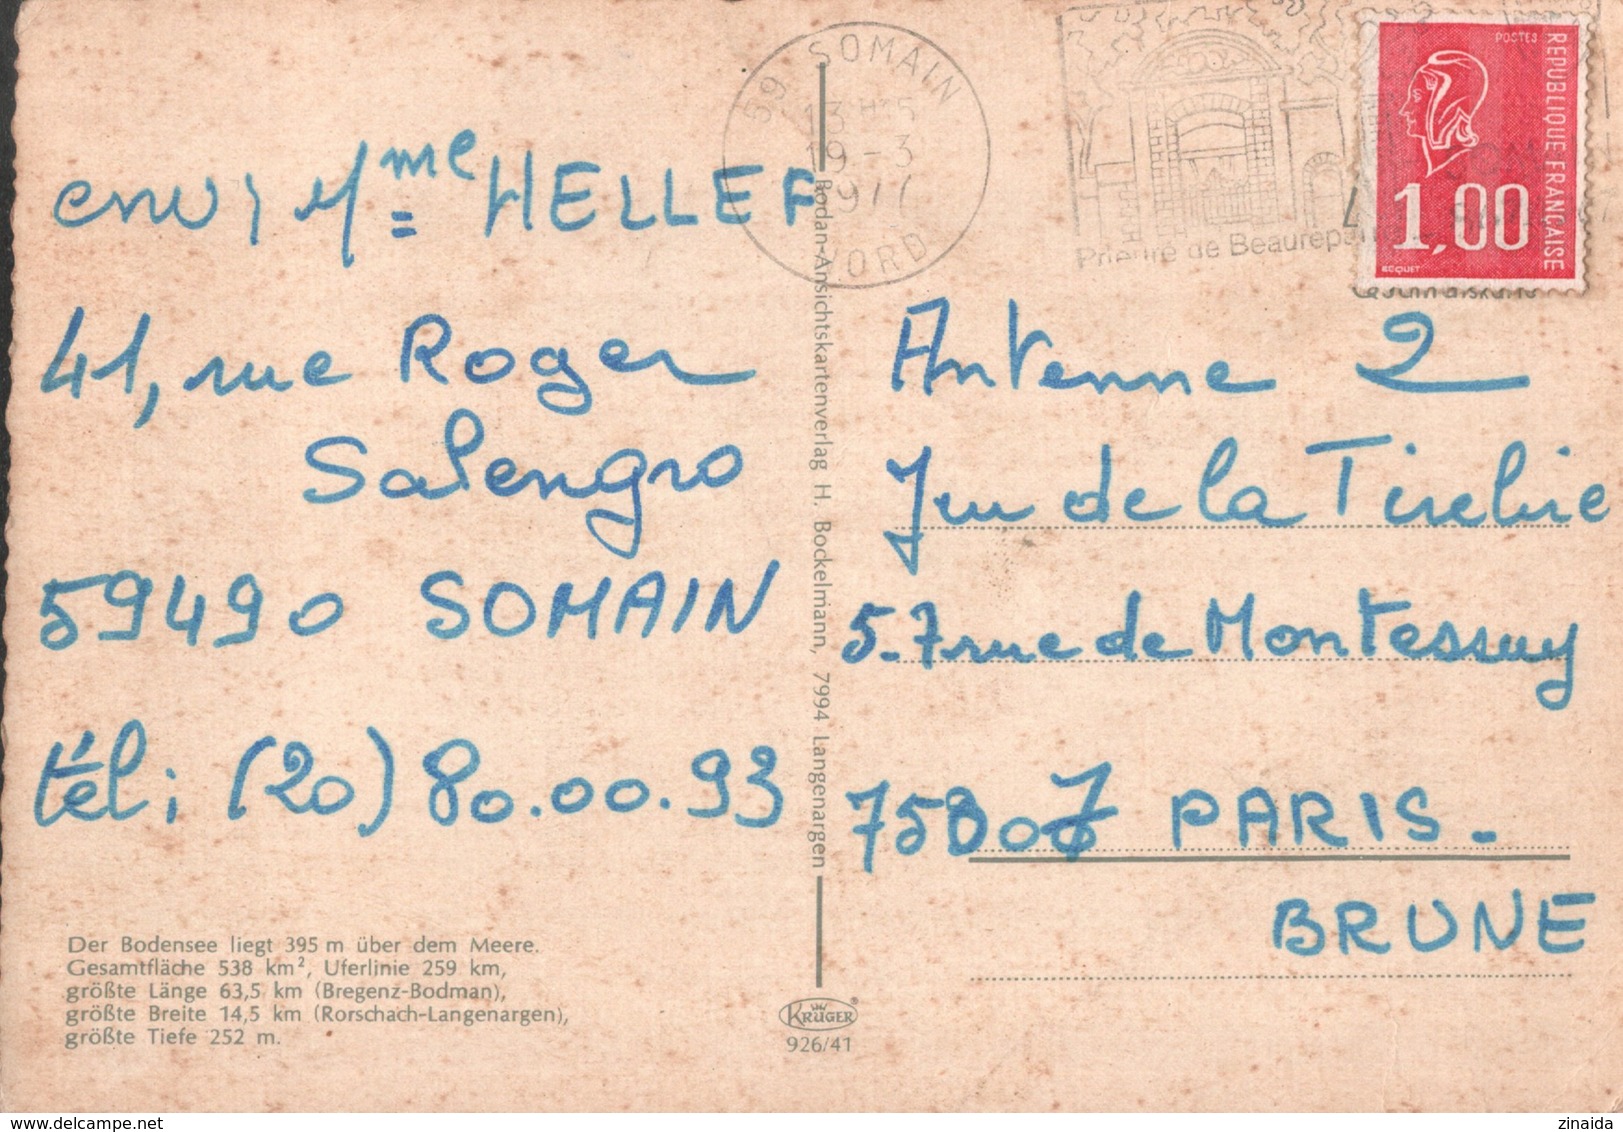 59 SOMAIN
13H15
19-3
1977
NORD
Prieuré de Beaurepaire
POSTES
REPUBLIQUE FRANÇAISE
1,00
BEQUET
envoi Mme HELLEF
41, rue Roger
Salengro
59490 SOMAIN
tél: (20) 80.00.93
Antenne 2
Jeu de la Tirelire
5-7 rue de Montessuy
75007 PARIS.
BRUNE
Bodan-Ansichtskartenverlag H. Bockelmann, 7994 Langenargen
Der Bodensee liegt 395 m über dem Meere.
Gesamtfläche 538 km², Uferlinie 259 km,
größte Länge 63,5 km (Bregenz-Bodman),
größte Breite 14,5 km (Rorschach-Langenargen),
größte Tiefe 252 m.
KRÜGER®
926/41
delcampe.net
zinaida